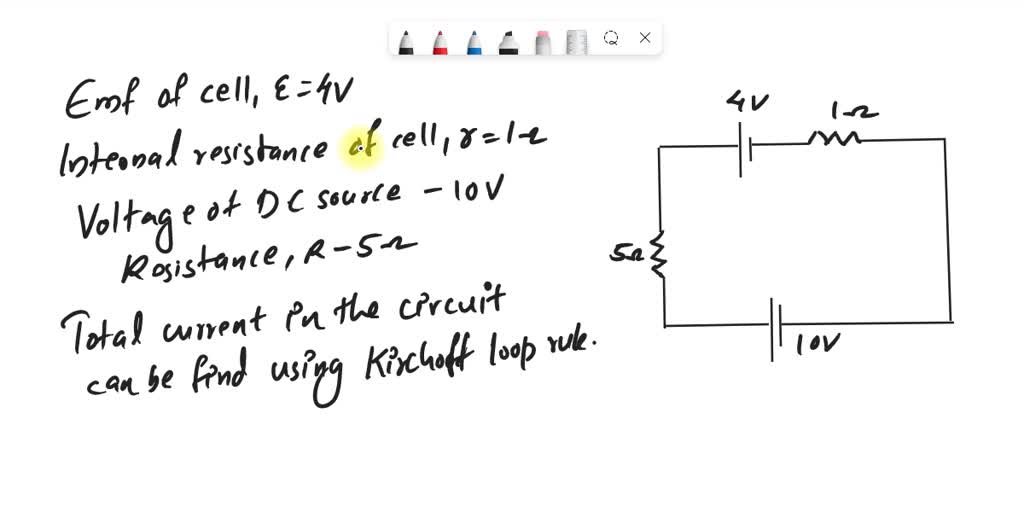 Emf of cell, ε=4V
Internal resistance of cell, r=1Ω
Voltage of DC source - 10V
Resistance, R - 5Ω
Total current in the circuit
can be find using Kirchoff loop rule.
4V
1Ω
5Ω
10V